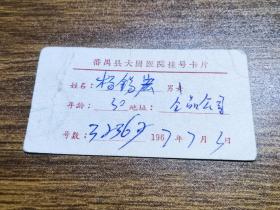 番禺县大岗医院挂号卡片
姓名：杨锡 男
年龄：50 地址：食品公司
号数：32362 1967年7月3日